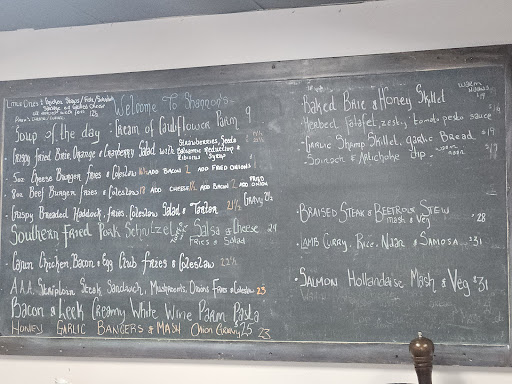 Welcome To Shannon's
Soup of the day : Cream of Cauliflower Parm 9
Crispy Fried Brie, Orange & Cranberry Salad with Strawberries, Seeds
Balsamic Reduction &
Hibiscus Syrup
5oz Cheese Burger Fries & Coleslaw ADD BACON 2 ADD FRIED ONIONS
8oz Beef Burger Fries & Coleslaw ADD CHEESE ADD BACON 2 ADD FRIED ONION
Crispy Breaded Haddock, Fries, Coleslaw Salad & Tartar 21½ GRAVY
Southern Fried Pork Schnitzel Salsa & Cheese 24
Fries & Salad
Cajun Chicken, Bacon & Egg Club Fries & Coleslaw 22½
AAA Striploin Steak Sandwich, Mushrooms, Onions Fries & Coleslaw 25
Bacon & Leek Creamy White Wine Parm Pasta
HONEY GARLIC BANGERS & MASH Onion Gravy $25 23
Baked Brie & Honey Skillet warm
Herbed falafel, zesty tomato pesto sauce
Garlic Shrimp Skillet, garlic Bread $19
Spinach & Artichoke dip, warm naan $17
BRAISED STEAK & BEETROOT STEW
Mash & Veg $28
LAMB CURRY, Rice, Naan & SAMOSA $31
SALMON Hollandaise Mash & Veg $31